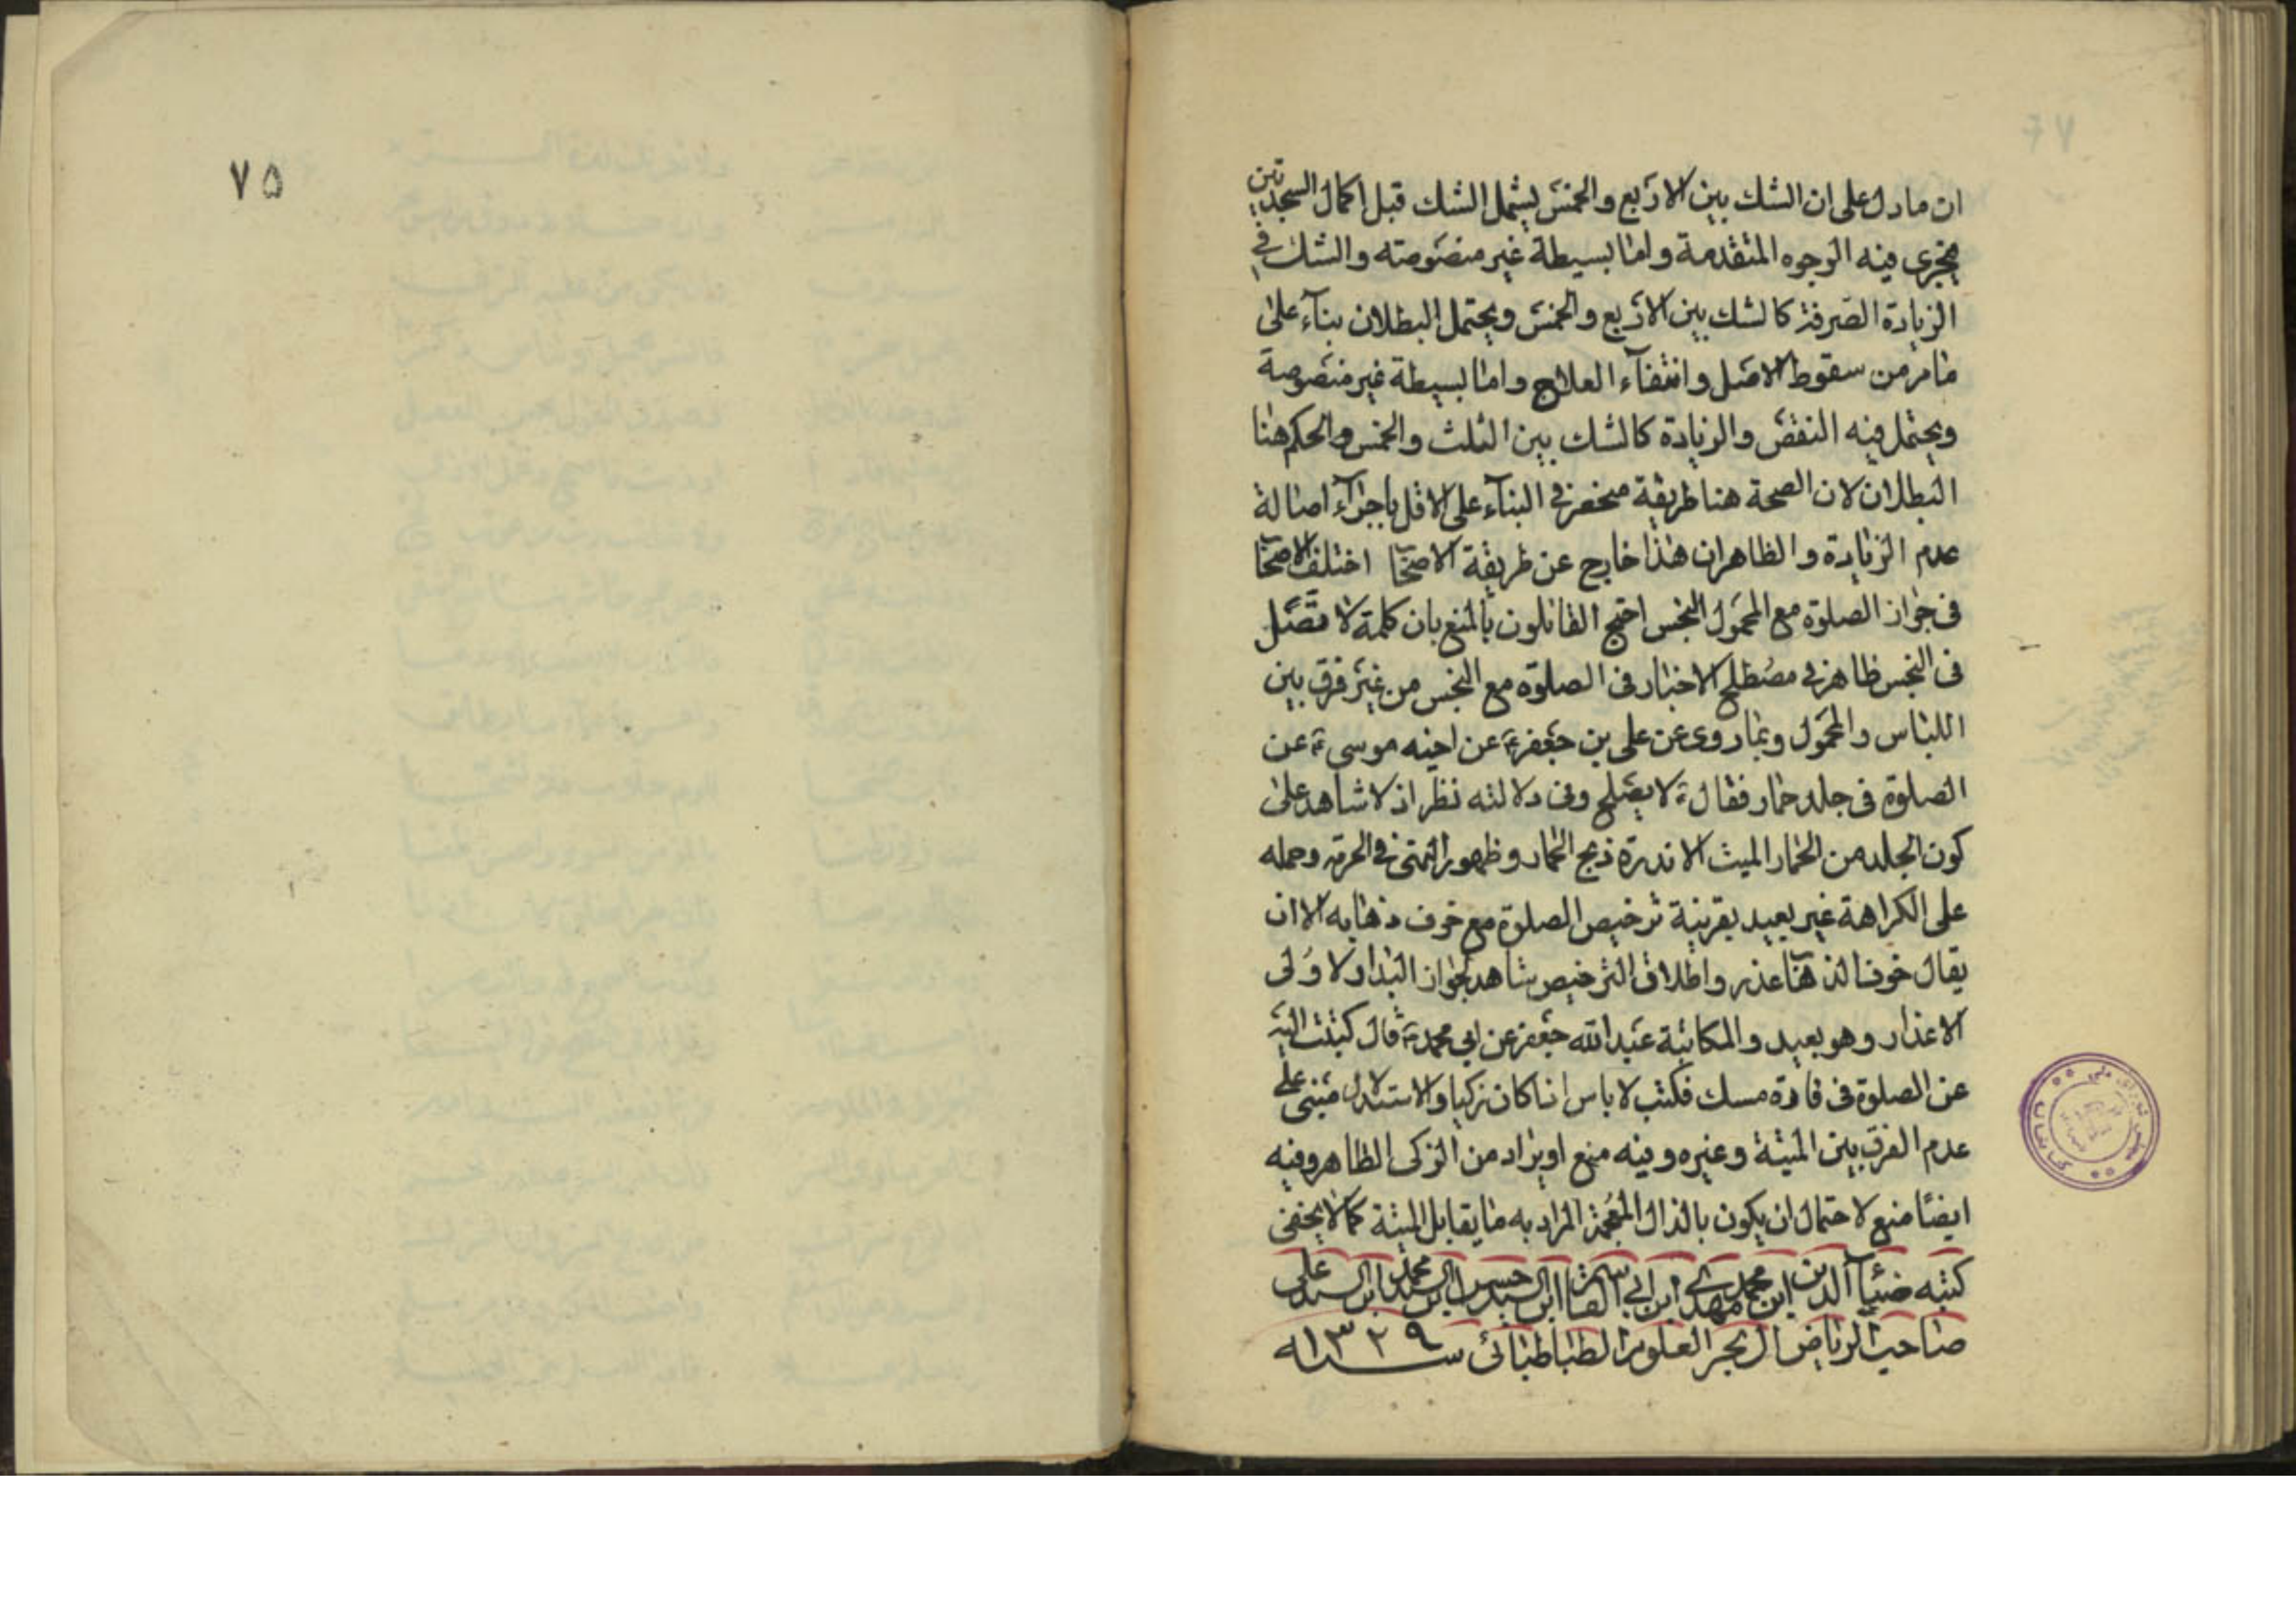 ان مادل على ان الشك بين الاربع والخمس يشمل الشك قبل اكمال السجدتين
يجرى فيه الوجوه المتقدمة واما بسيطة غير منصوصته والشك فى
الزيادة الصرفة كالشك بين الاربع والخمس ويحتمل البطلان بناء على
مامر من سقوط الاصل وانتفاء العلاج واما بسيطة غير منصوصة
ويحتمل فيه النقص والزيادة كالشك بين الثلث والخمس والحكم هنا
البطلان لان الصحة هنا طريقة منحصر فى البناء على الاقل باجراء اصالة
عدم الزيادة والظاهر ان هذا خارج عن طريقة الاصحا اختلف الاصحا
فى جواز الصلوة مع المحمول النجس احتج القائلون بالمنع بان كلمة لا تصل
فى النجس ظاهر فى مصطلح الاخبار فى الصلوة مع النجس من غير فرق بين
اللباس والمحمول وبما روى عن على بن جعفر ع عن اخيه موسى ع عن
الصلوة فى جلد حمار فقال ع لا يصلح وفى دلالته نظر اذ لا شاهد على
كون الجلد من الحمار الميت الا ندرة ذبح الحمار وظهور النهى فى الحرمة وحمله
على الكراهة غير بعيد بقرينة ترخيص الصلوة مع خوف ذهابه الا ان
يقال خوف الذهاب عذر واطلاق الترخيص شاهد لجواز البدار لاولى
الاعذار وهو بعيد والمكاتبة عبد الله جعفر عن ابي محمد ع قال كتبت اليه
عن الصلوة فى فارة مسك فكتب لا باس اذا كان زكيا والاستدلال مبنى على
عدم الفرق بين الميتة وغيره وفيه منع او يراد من الزكى الطاهر وفيه
ايضا منع لاحتمال ان يكون بالذال المعجمة المراد به ما يقابل الميتة كما لا يخفى
كتبه ضياء الدين ابن محمد مهدى ابن ابي القاسم ابن السيد حسن ابن السيد محمد ابن السيد على
صاحب الرياض ال بحر العلوم الطباطبائى سنه ١٣٢٩
٧٥